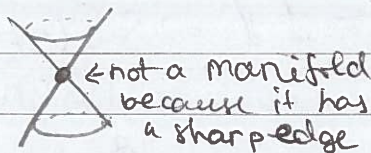 ← not a manifold
because it has
a sharp edge